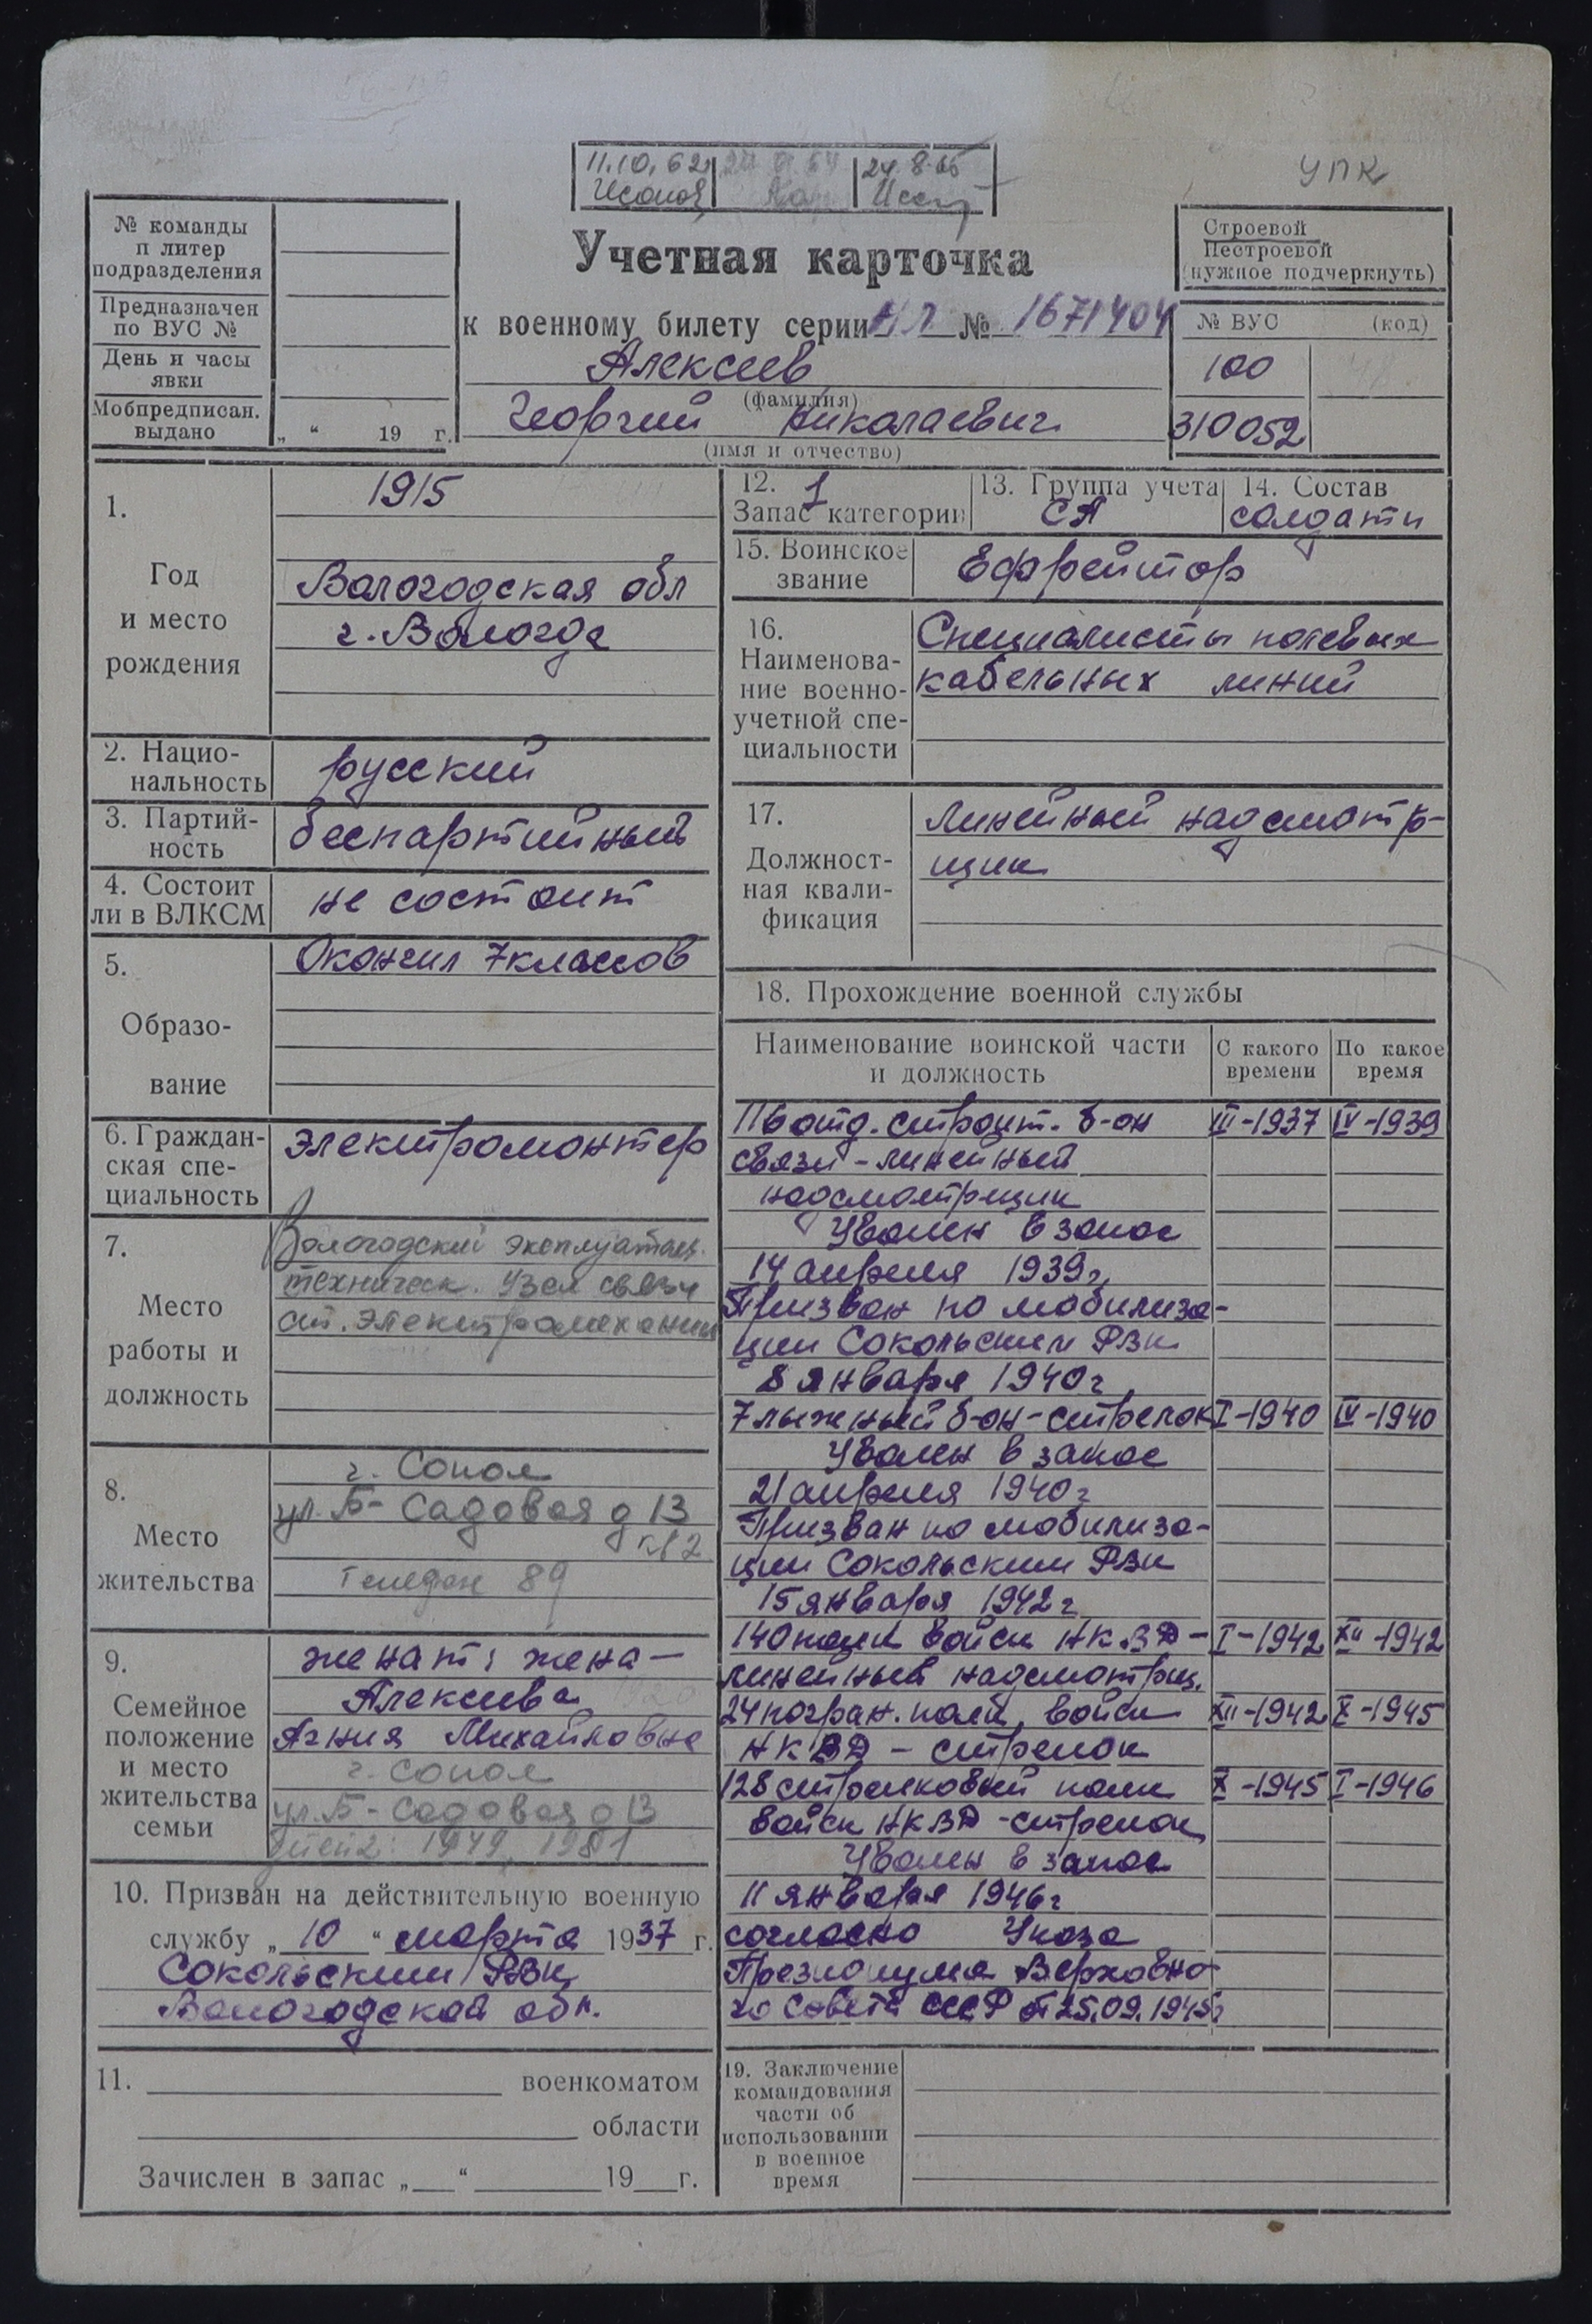 УПК
11.10.62 24.8.65
№ команды
п литер
подразделения
Предназначен
по ВУС №
День и часы
явки
Мобпредписан.
выдано
„ “ 19 г.
Учетная карточка
к военному билету серии НЛ № 1671404
Алексеев
(фамилия)
Георгий Николаевич
(имя и отчество)
Строевой
Нестроевой
(нужное подчеркнуть)
№ ВУС (код)
100
310052
1.
Год
и место
рождения
1915
Вологодская обл
г. Вологда
2. Нацио-
нальность
русский
3. Партий-
ность
беспартийный
4. Состоит
ли в ВЛКСМ
не состоит
5.
Образо-
вание
Окончил 7 классов
6. Граждан-
ская спе-
циальность
электромонтер
7.
Место
работы и
должность
Вологодский эксплуатац.
техническ. узел связи
ст. электромеханик
8.
Место
жительства
г. Сокол
ул. Б-Садовая д 13
кв 2
Телефон 89
9.
Семейное
положение
и место
жительства
семьи
женат: жена –
Алексеева
Агния Михайловна
г. Сокол
ул. Б-Садовая д 13
10. Призван на действительную военную
службу „ 10 “ марта 1937 г.
Сокольским РВК
Вологодской обл.
11. военкоматом
области
Зачислен в запас „ “ 19 г.
12. 1
Запас категории
13. Группа учета
СА
14. Состав
солдаты
15. Воинское
звание
Ефрейтор
16.
Наименова-
ние военно-
учетной спе-
циальности
Специалисты полевых
кабельных линий
17.
Должност-
ная квали-
фикация
Линейный надсмотр-
щик
18. Прохождение военной службы
Наименование воинской части
и должность
С какого
времени
По какое
время
116 отд. строит. б-он III-1937 IV-1939
связи – линейный
надсмотрщик
Уволен в запас
14 апреля 1939г.
Призван по мобилиза-
ции Сокольским РВК
8 января 1940г.
7 лыжный б-он – стрелок I-1940 IV-1940
Уволен в запас
21 апреля 1940г
Призван по мобилиза-
ции Сокольским РВК
15 января 1942г
140 полк войск НКВД – I-1942 XII-1942
линейный надсмотрщ.
24 погран. полк войск XII-1942 X-1945
НКВД – стрелок
128 стрелковый полк X-1945 I-1946
войск НКВД – стрелок
Уволен в запас
11 января 1946г
согласно Указа
Президиума Верховно-
го Совета СССР от 25.09.1945г
19. Заключение
командования
части об
использовании
в военное
время